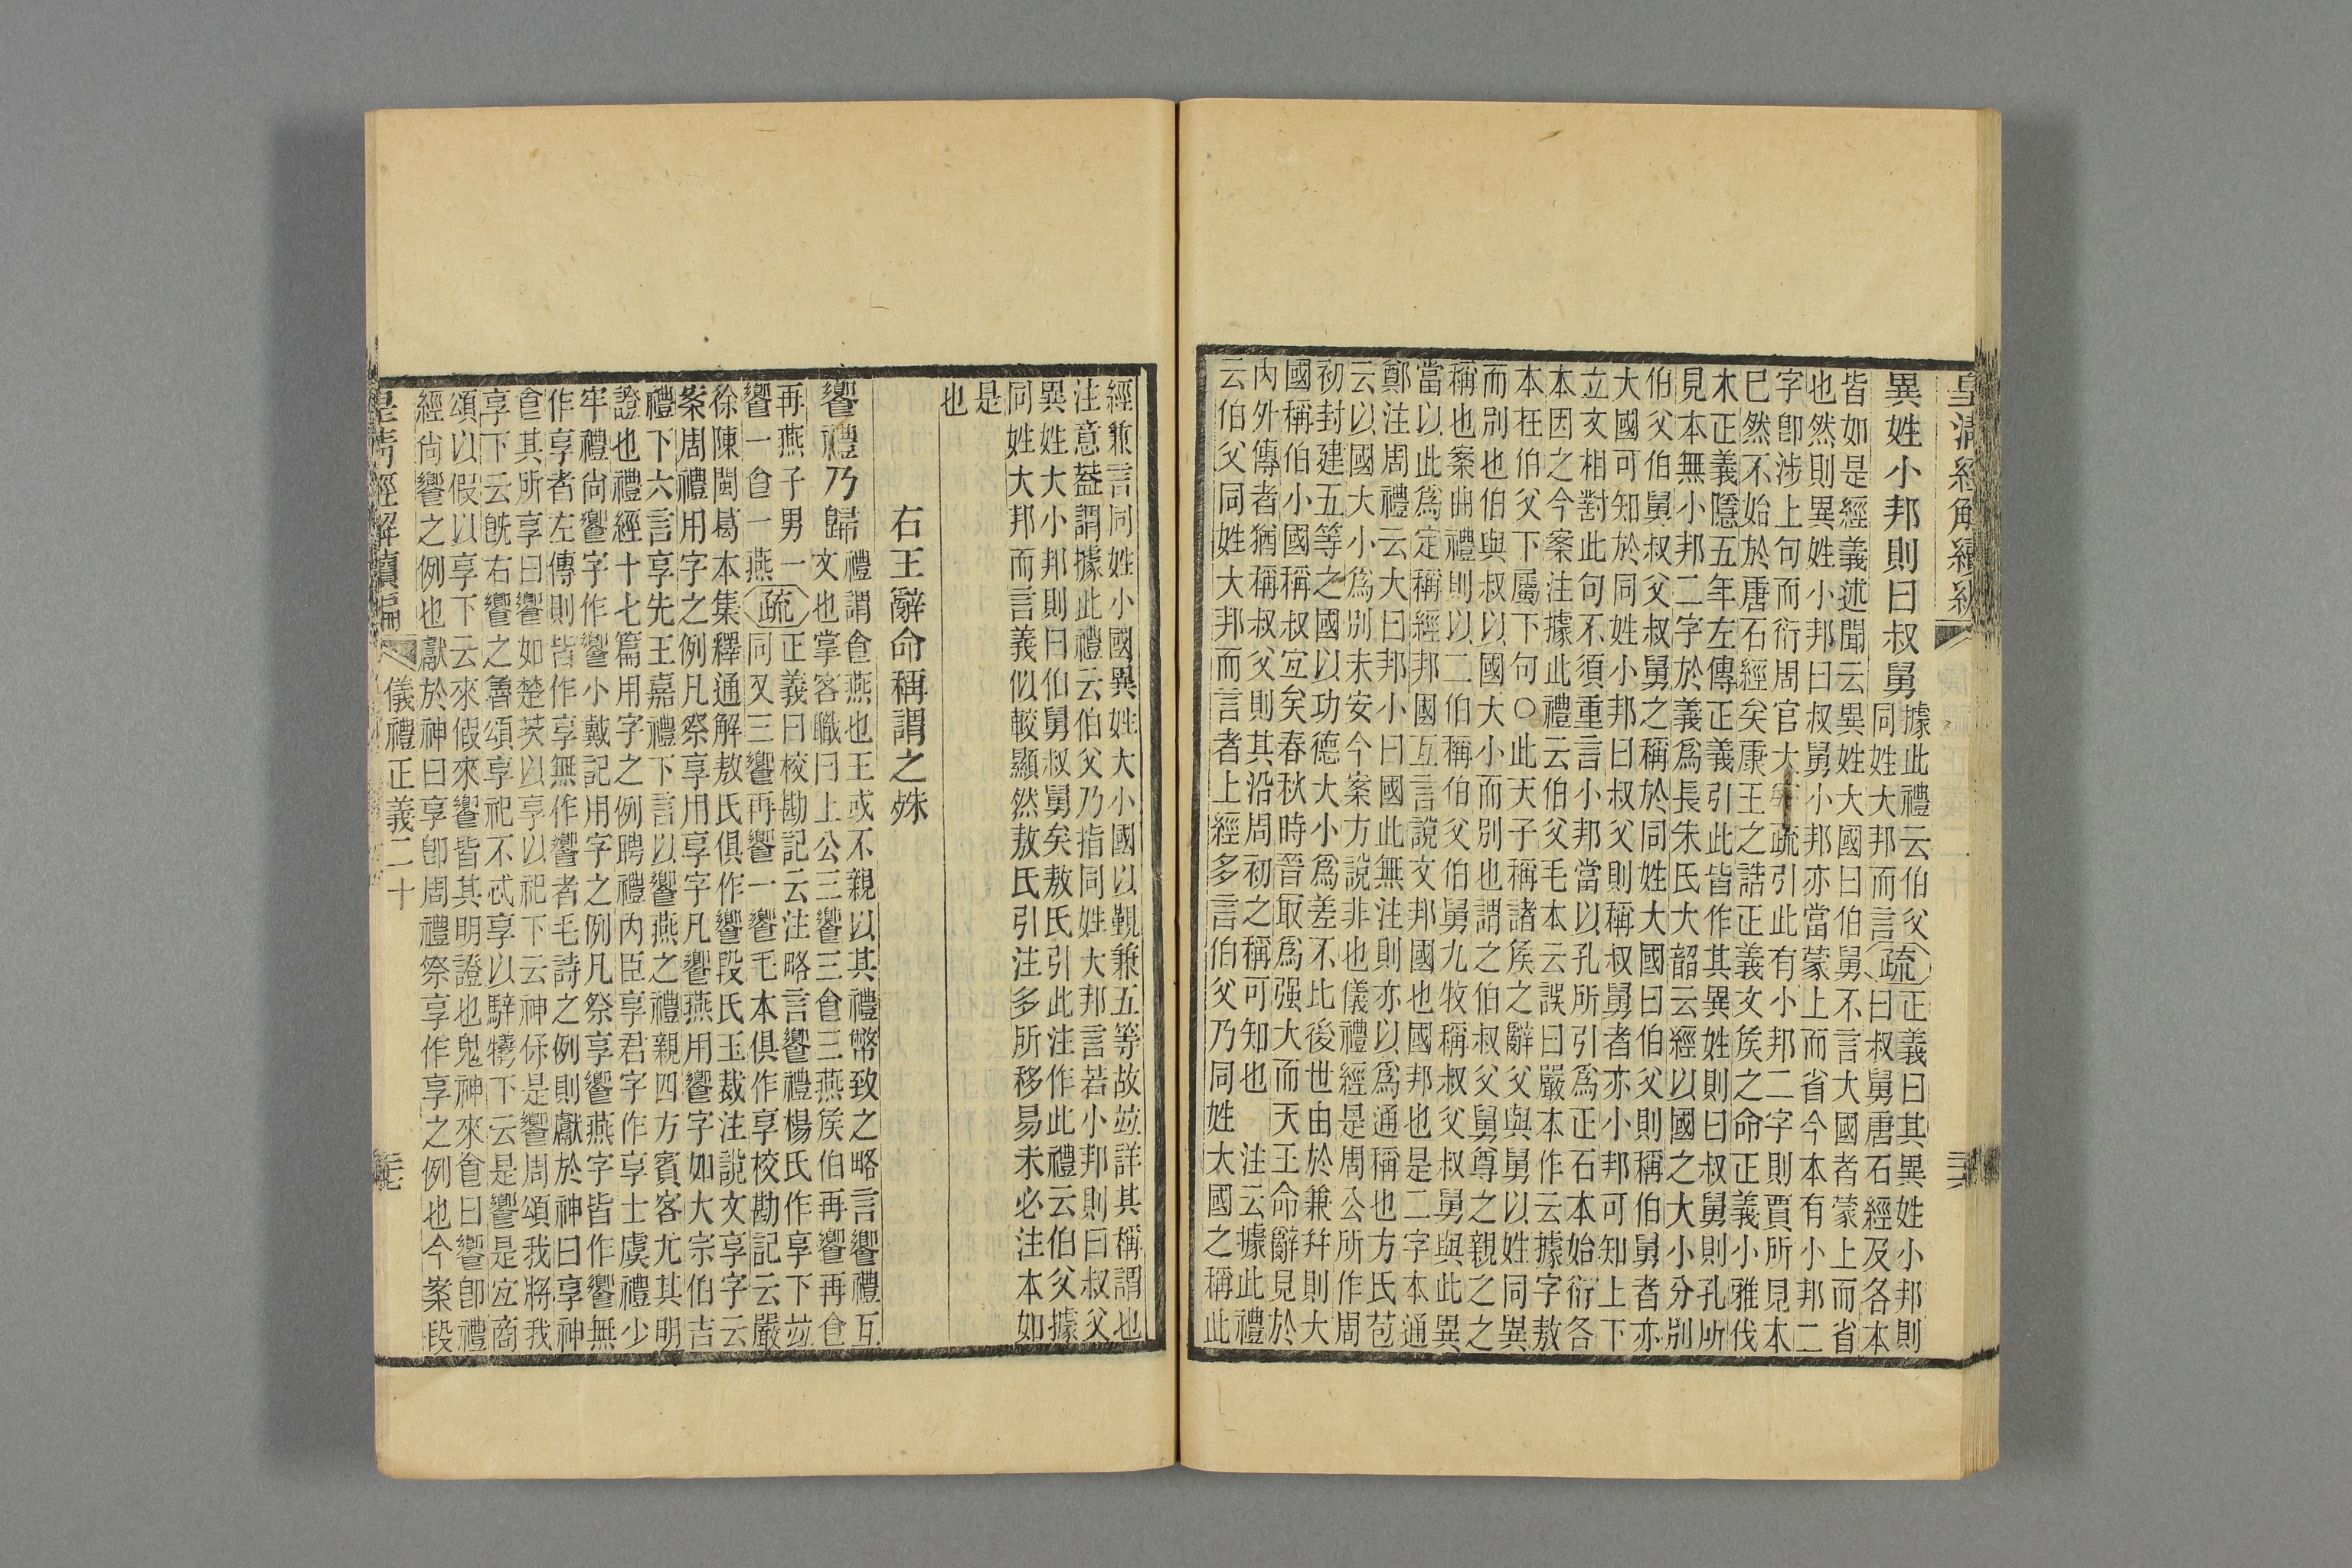 皇清經解續編
異姓小邦則曰叔舅據此禮云伯父
同姓大邦而言疏正義曰其異姓小邦則
曰叔舅唐石經及各本
皆如是經義述聞云異姓大國曰伯舅不言大國者蒙上而省
也然則異姓小邦曰叔舅小邦亦當蒙上而省今本有小邦二
字卽涉上句而衍周官大宰疏引此有小邦二字則賈所見本
巳然不始於唐石經矣康王之誥正義文矦之命正義小雅伐
木正義隱五年左傳正義引此皆作其異姓則曰叔舅則孔所
見本無小邦二字於義爲長朱氏大韶云經以國之大小分別
伯父伯舅叔父叔舅之稱於同姓大國曰伯父則稱伯舅者亦
大國可知於同姓小邦曰叔父則稱叔舅者亦小邦可知上下
立文相對此句不須重言小邦當以孔所引爲正石本始衍各
本因之今案注據此禮云伯父毛本云誤曰嚴本作云據字敖
本在伯父下屬下句○此天子稱諸矦之辭父與舅以姓同異
而別也伯與叔以國大小而別也謂之伯叔父舅尊之親之之
稱也案曲禮則以二伯稱伯父伯舅九牧稱叔父叔舅與此異
當以此爲定稱經邦國互言說文邦國也國邦也是二字本通
鄭注周禮云大曰邦小曰國此無注則亦以爲通稱也方氏苞
云以國大小爲別未安今案方說非也儀禮經是周公所作周
初封建五等之國以功德大小爲差不比後世由於兼并則大
國稱伯小國稱叔宜矣春秋時晉取爲强大而天王命辭見於
內外傳者猶稱叔父則其沿周初之稱可知也　注云據此禮
云伯父同姓大邦而言者上經多言伯父乃同姓大國之稱此
經兼言同姓小國異姓大小國以覲兼五等故竝詳其稱謂也
注意葢謂據此禮云伯父乃指同姓大邦言若小邦則曰叔父
異姓大小邦則曰伯舅叔舅矣敖氏引此注作此禮云伯父據
同姓大邦而言義似較顯然敖氏引注多所移易未必注本如
是
也
右王辭命稱謂之殊
饗禮乃歸禮謂食燕也王或不親以其禮幣致之略言饗禮互
文也掌客職曰上公三饗三食三燕矦伯再饗再食
再燕子男一
饗一食一燕疏正義曰校勘記云注略言饗禮楊氏作享下竝
同又三饗再饗一饗毛本俱作享校勘記云嚴
徐陳閩葛本集釋通解敖氏俱作饗段氏玉裁注說文享字云
案周禮用字之例凡祭享用享字凡饗燕用饗字如大宗伯吉
禮下六言享先王嘉禮下言以饗燕之禮親四方賓客尤其明
證也禮經十七篇用字之例聘禮內臣享君字作享士虞禮少
牢禮尚饗字作饗小戴記用字之例凡祭享饗燕字皆作饗無
作享者左傳則皆作享無作饗者毛詩之例則獻於神曰享神
食其所享曰饗如楚茨以享以祀下云神保是饗周頌我將我
享下云旣右饗之魯頌享祀不忒享以騂犧下云是饗是宜商
頌以假以享下云來假來饗皆其明證也鬼神來食曰饗卽禮
經尚饗之例也獻於神曰享卽周禮祭享作享之例也今案段
儀禮正義二十